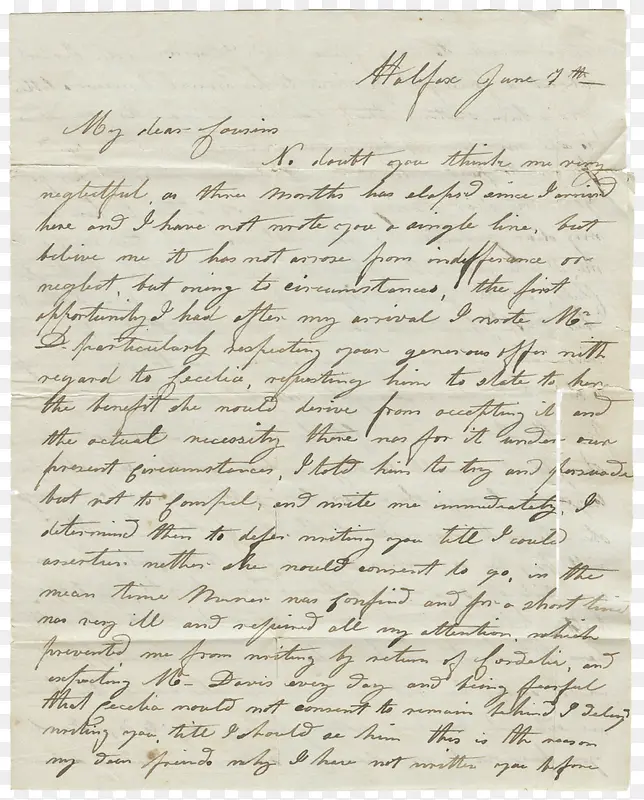 Halifax June 7th
My dear Cousins
No doubt you think me very
neglectful, as three months has elapsd since I arrived
here and I have not wrote you a single line, but
believe me it has not arose from indifferance or
neglect, but owing to circumstances, the first
opportunity I had after my arrival I wrote Mr
D. particularly respecting your generous offer with
regard to Cecelia, requesting him to state to her
the benefit she would derive from accepting it and
the actual necessity there was for it under our
present circumstances, I told him to try and persuade
but not to Compel, and write me immediately, I
determined then to defer writing you till I could
assertain wether she would consent to go, in the
mean time was Confind and for a short time
was very ill and required all my attention, which
prevented me from writing by return of Cordelia, and
expecting Mr Davis every day and being fearful
that Cecelia would not consent to remain behind I delayd
writing you, till I should see him this is the reason
my dear friends why I have not written you before